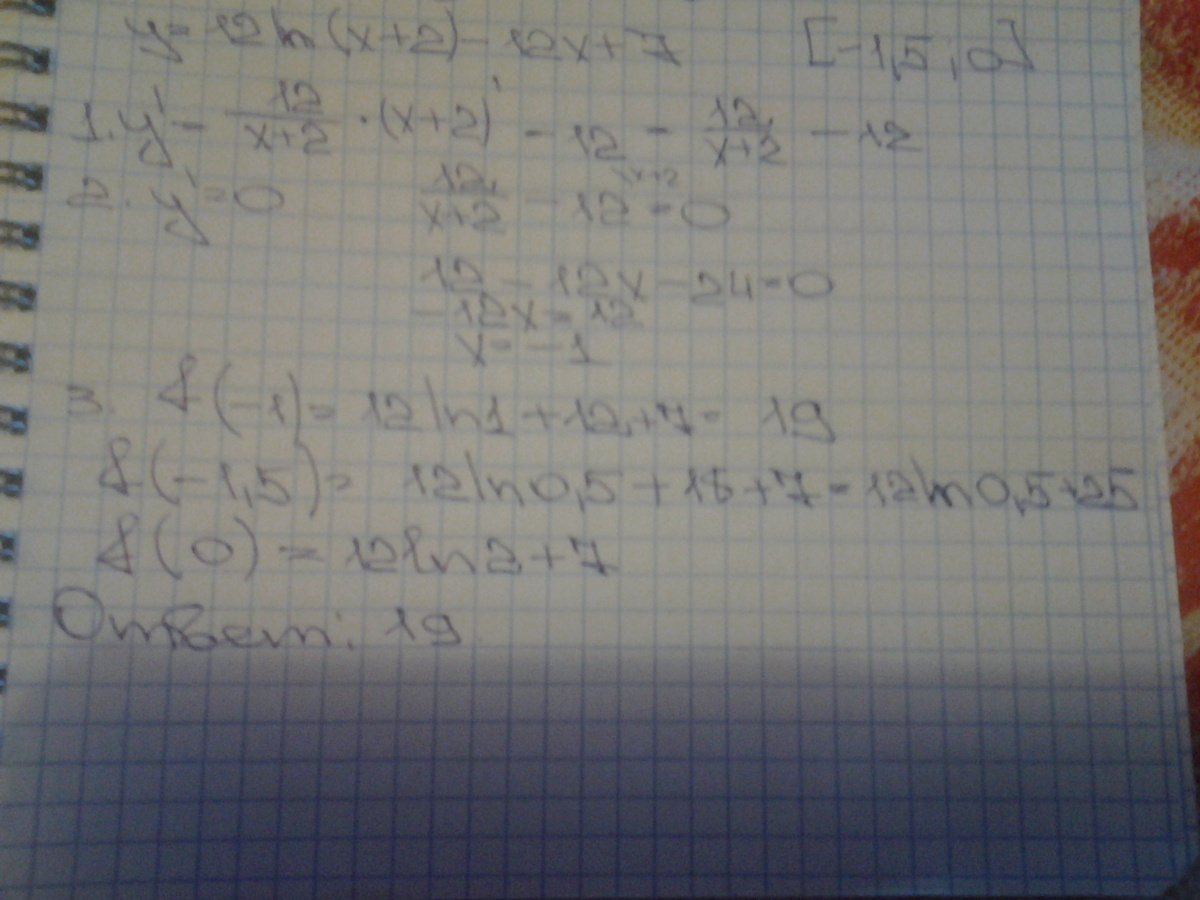 y = 12 ln (x+2) - 12x + 7 [-1,5 ; 0]
1. y' = 12/(x+2) · (x+2)' - 12 = 12/(x+2) - 12
2. y' = 0 12/(x+2) - 12 = 0
12 - 12x - 24 = 0
-12x = 12
x = -1
3. f(-1) = 12 ln1 + 12 + 7 = 19
f(-1,5) = 12 ln 0,5 + 18 + 7 = 12 ln 0,5 + 25
f(0) = 12 ln 2 + 7
Ответ: 19